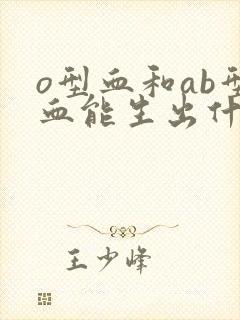 o型血和ab型
血能生出什
王少峰